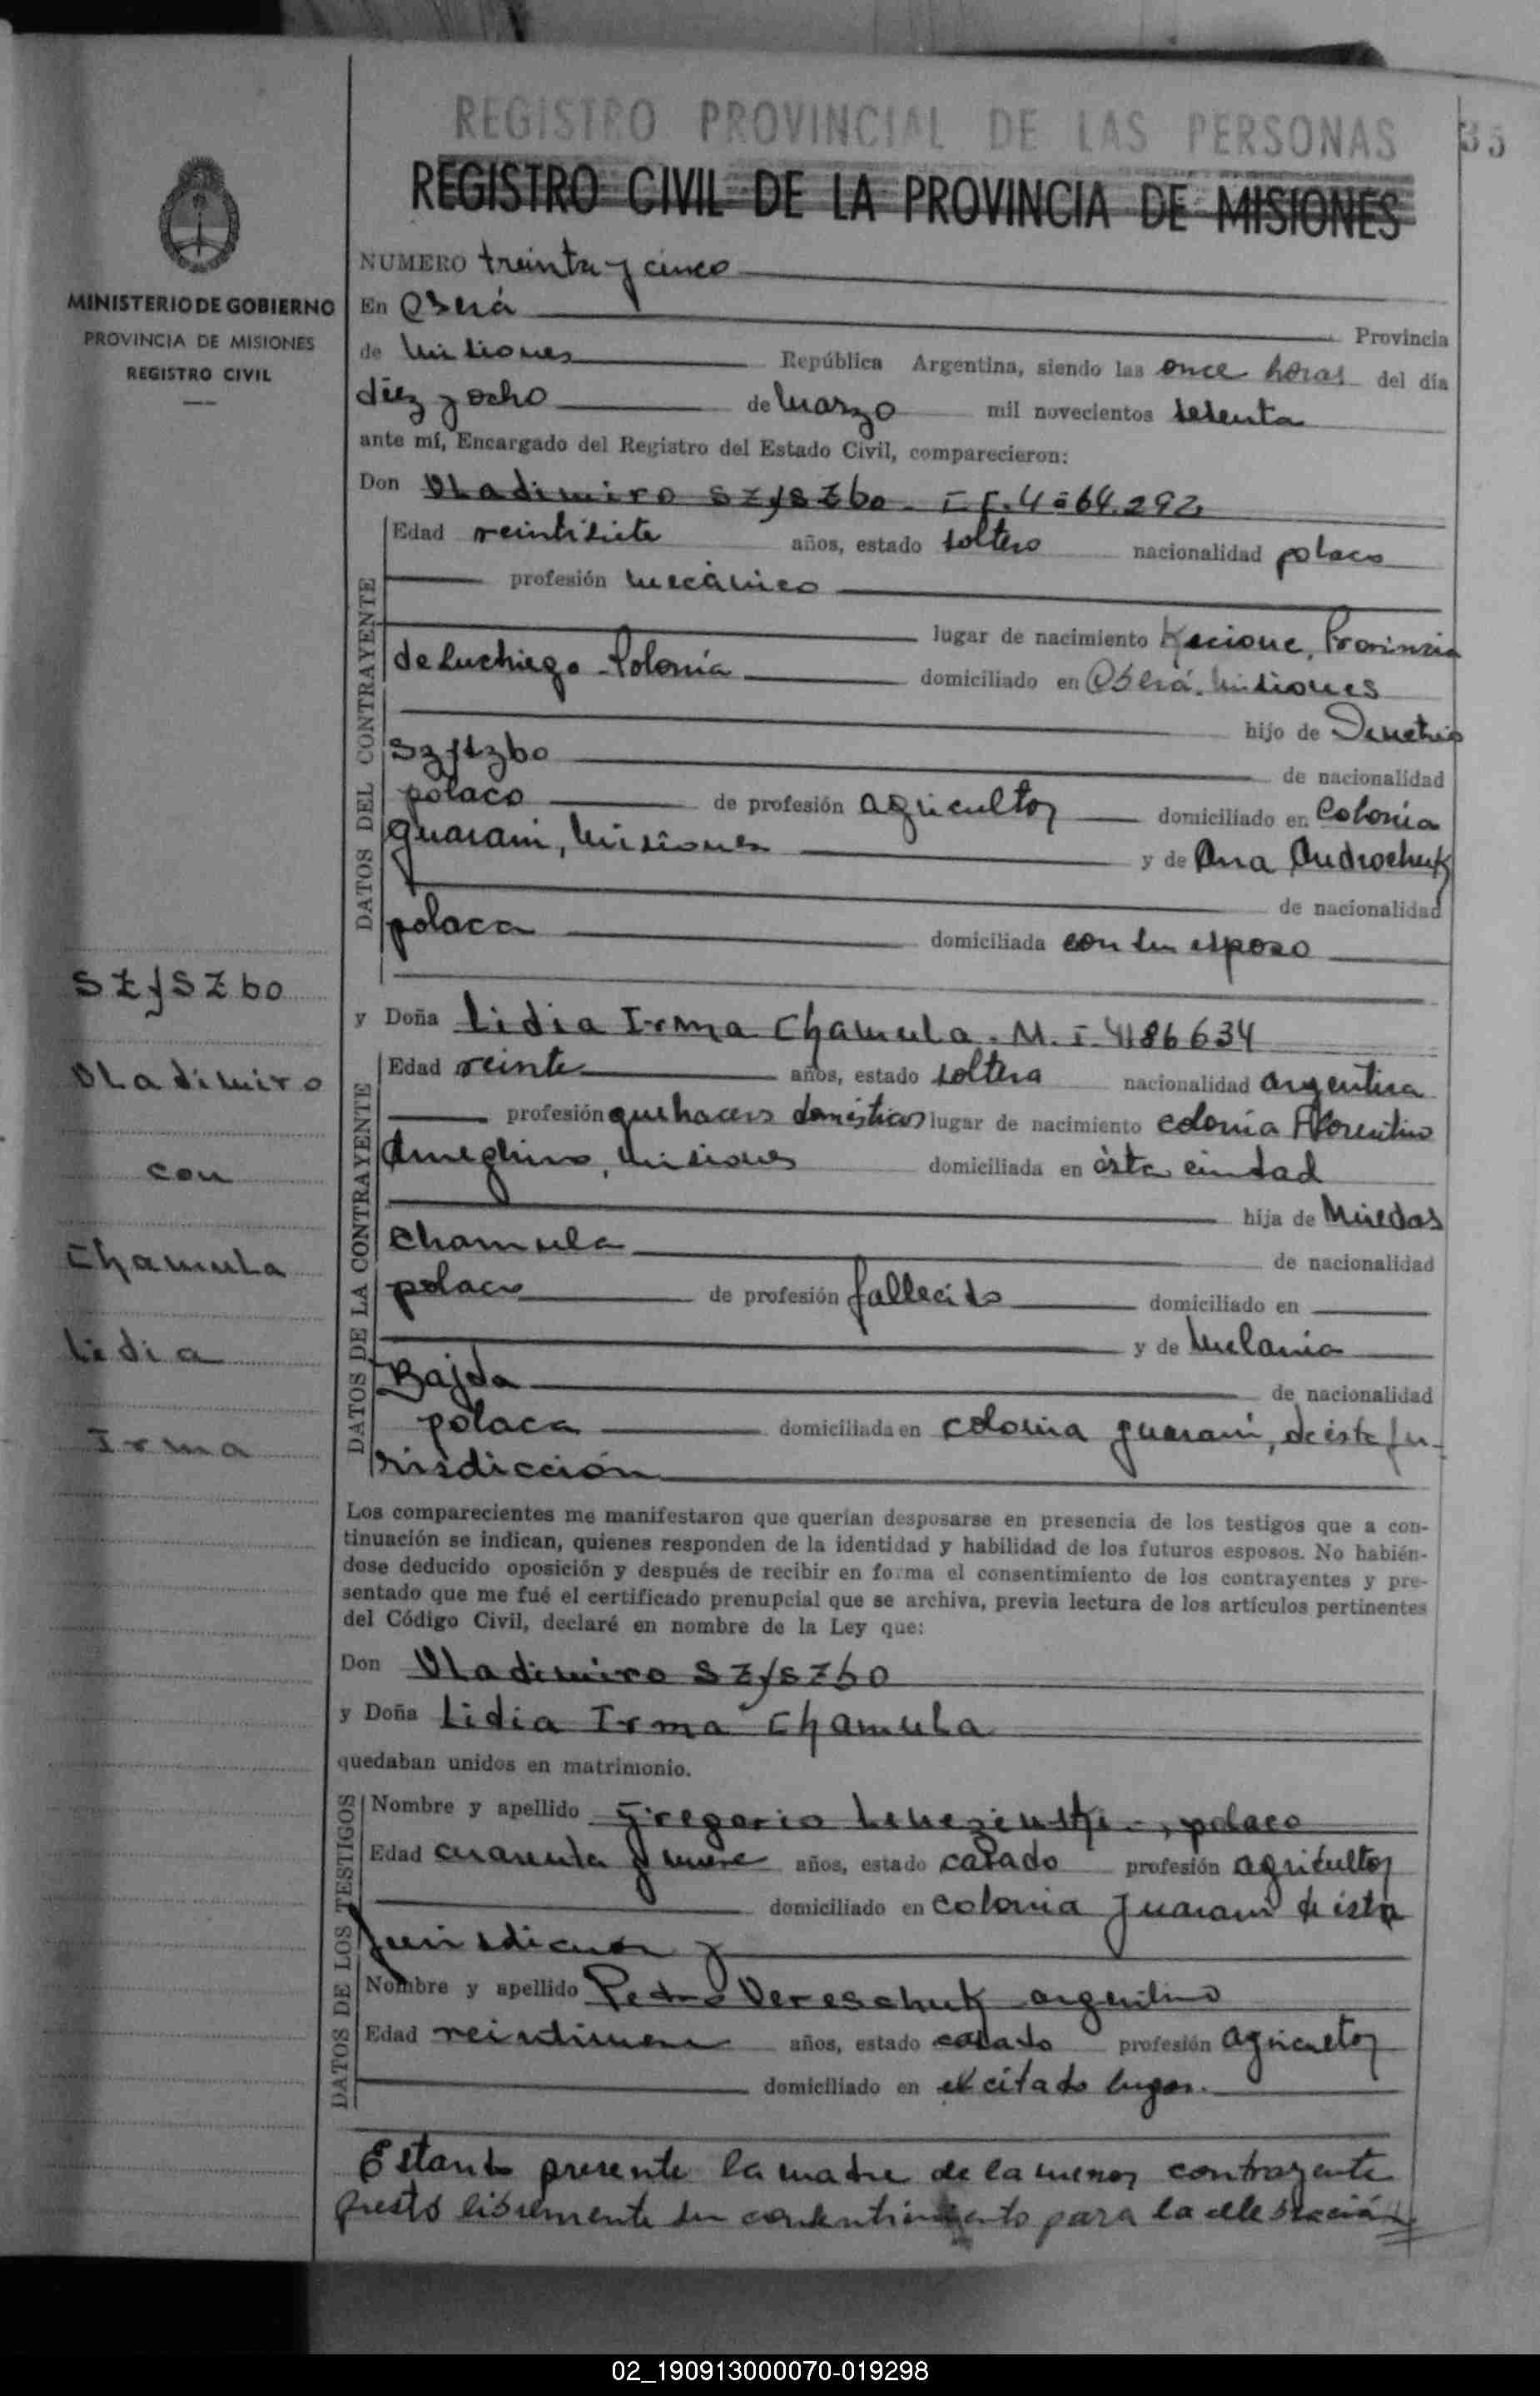 REGISTRO PROVINCIAL DE LAS PERSONAS
35
REGISTRO CIVIL DE LA PROVINCIA DE MISIONES
MINISTERIO DE GOBIERNO
PROVINCIA DE MISIONES
REGISTRO CIVIL
NUMERO treinta y cinco
En Oberá Provincia
de Misiones República Argentina, siendo las once horas del día
diez y ocho de Marzo mil novecientos setenta
ante mí, Encargado del Registro del Estado Civil, comparecieron:
Don Vladimiro Szyszbo
Edad veintisiete años, estado soltero nacionalidad polaco
profesión mecánico
lugar de nacimiento Provincia
Polonia domiciliado en Oberá, Misiones
hijo de Demetrio
Szyszbo de nacionalidad
polaco de profesión agricultor domiciliado en Colonia
Guaraní, Misiones y de Ana Androchuk
de nacionalidad
polaca domiciliada con su esposo
y Doña Lidia Irma Chamula. M. I. 4186634
Edad veinte años, estado soltera nacionalidad argentina
profesión quehaceres domésticos lugar de nacimiento colonia Florentino
Ameghino, Misiones domiciliada en ésta ciudad
hija de
Chamula de nacionalidad
polaco de profesión fallecido domiciliado en
y de Melania
Bajda de nacionalidad
polaca domiciliada en colonia Guaraní, de ésta ju-
risdicción
DATOS DEL CONTRAYENTE
DATOS DE LA CONTRAYENTE
Szyszbo
Vladimiro
con
Chamula
Lidia
Irma
Los comparecientes me manifestaron que querían desposarse en presencia de los testigos que a con-
tinuación se indican, quienes responden de la identidad y habilidad de los futuros esposos. No habién-
dose deducido oposición y después de recibir en forma el consentimiento de los contrayentes y pre-
sentado que me fué el certificado prenupcial que se archiva, previa lectura de los artículos pertinentes
del Código Civil, declaré en nombre de la Ley que:
Don Vladimiro Szyszbo
y Doña Lidia Irma Chamula
quedaban unidos en matrimonio.
DATOS DE LOS TESTIGOS
Nombre y apellido Gregorio polaco
Edad cuarenta y nueve años, estado casado profesión agricultor
domiciliado en colonia Guaraní de ésta
jurisdicción y
Nombre y apellido Pedro Vereschuk argentino
Edad veintinueve años, estado casado profesión agricultor
domiciliado en el citado lugar.
Estando presente la madre de la menor contrayente
prestó libremente su consentimiento para la celebración
02_190913000070-019298